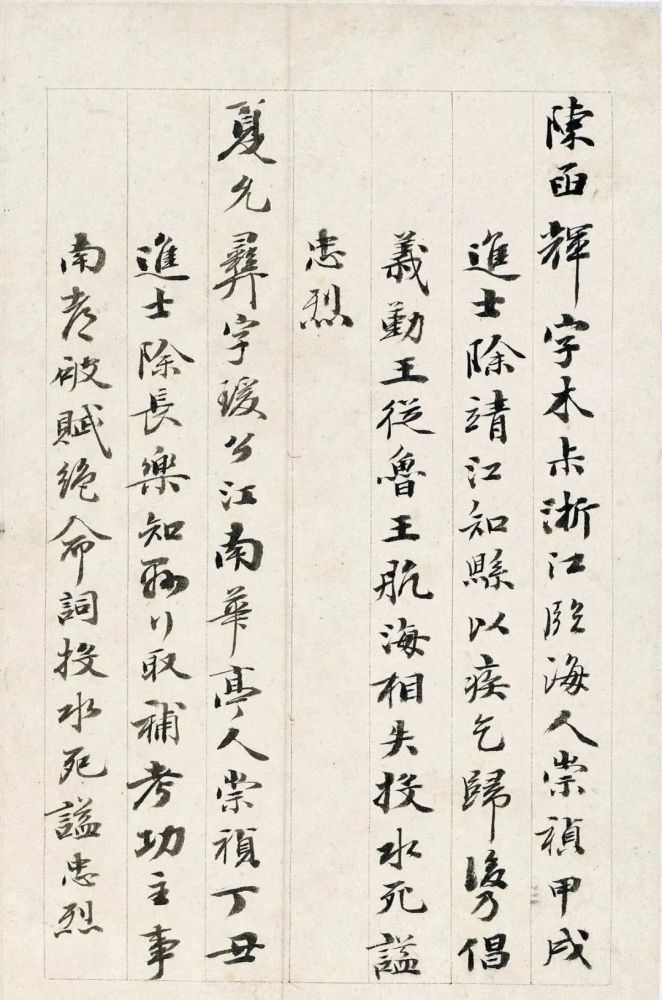 陳函輝字木叔浙江臨海人崇禎甲戌
進士除靖江知縣以疾乞歸後乃倡
義勤王從魯王航海相失投水死謚
忠烈
夏允彝字瑗公江南華亭人崇禎丁丑
進士除長樂知縣行取補考功主事
南都破賦絶命詞投水死謚忠烈